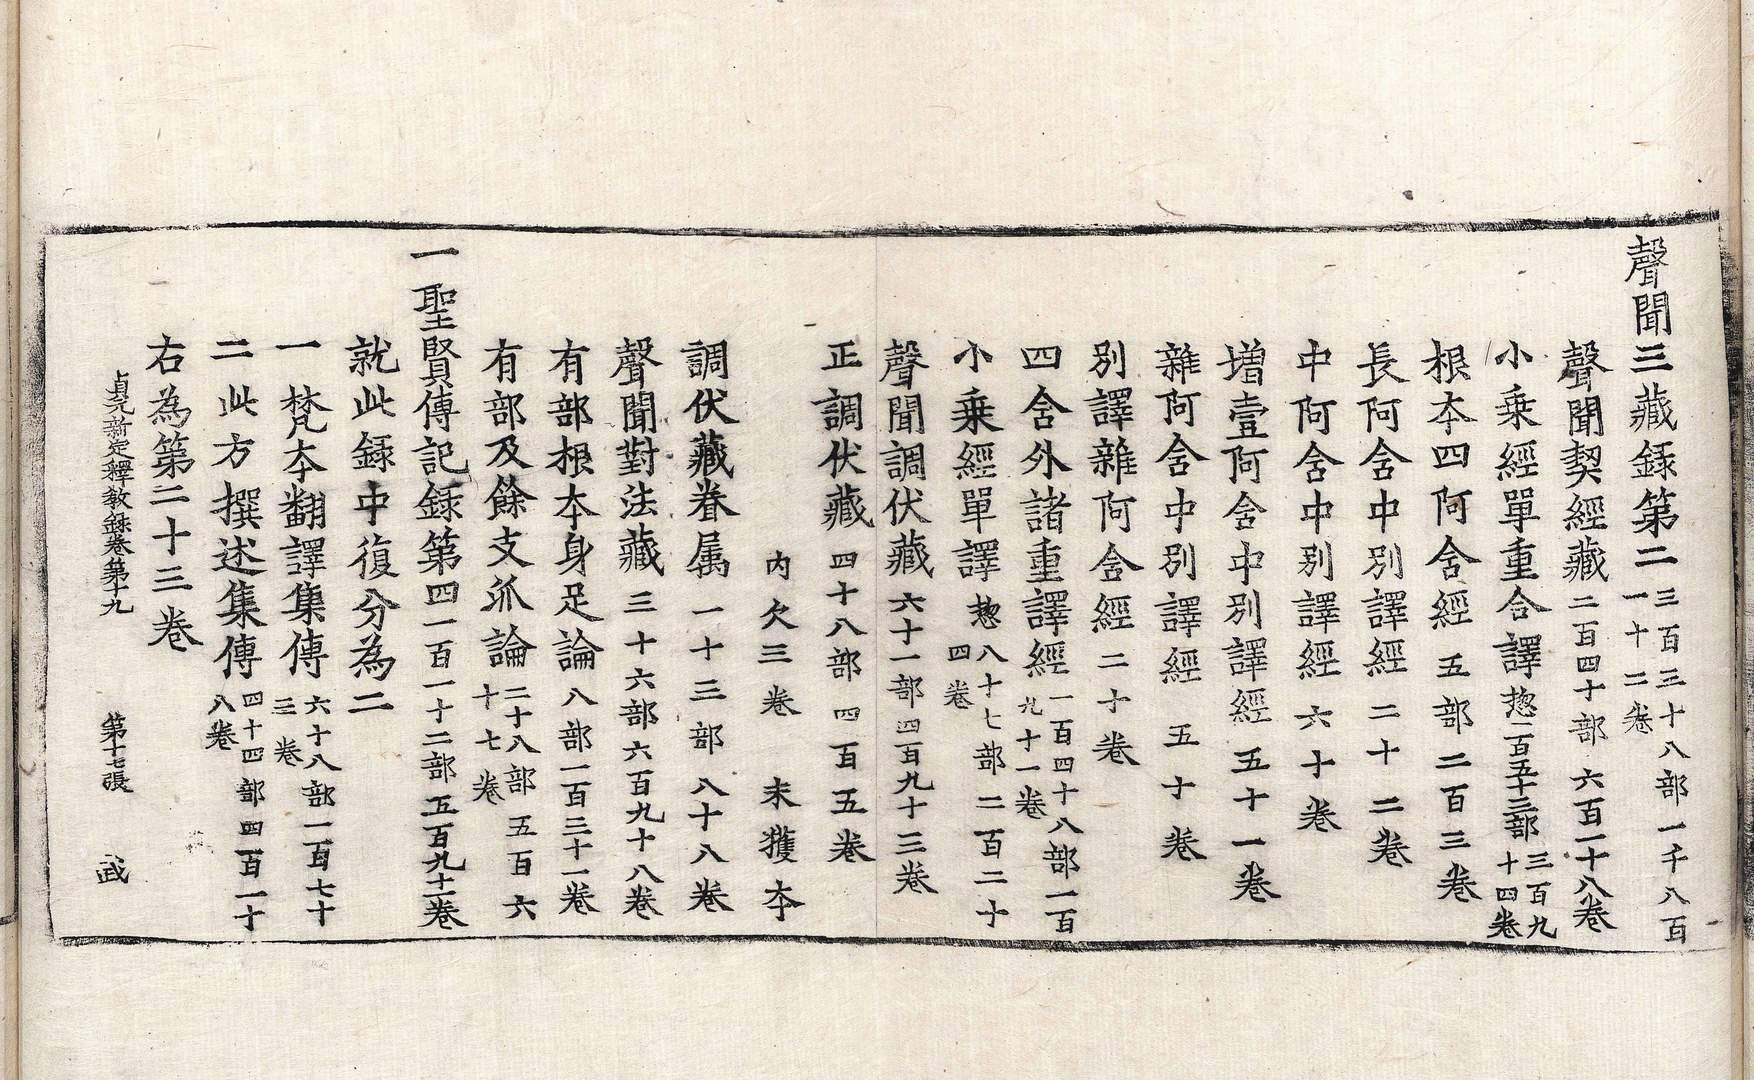 聲聞三藏録第二三百三十八部一千八百一十二卷
聲聞契經藏二百四十部六百一十八卷
小乗經單重合譯惣一百五十三部三百九十四卷
根夲四阿含經五部二百三卷
長阿含中別譯經二十二卷
中阿含中別譯經六十卷
増壹阿含中別譯經五十一卷
雜阿含中別譯經五十卷
別譯雜阿含經二十卷
四含外諸重譯經一百四十八部一百九十一卷
小乗經單譯惣八十七部二百二十四卷
聲聞調伏藏六十一部四百九十三卷
正調伏藏四十八部四百五卷
内欠三卷未獲夲
調伏藏眷属一十三部八十八卷
聲聞對法藏三十六部六百九十八卷
有部根夲身足論八部一百三十一卷
有部及餘支派論二十八部五百六十七卷
一聖賢傳記録第四一百一十二部五百九十一卷
就此録中復分為二
一梵夲翻譯集傳六十八部一百七十三卷
二此方撰述集傳四十四部四百一十八卷
右為第二十三卷
貞元新定釋教録卷第十九 第十七張 武